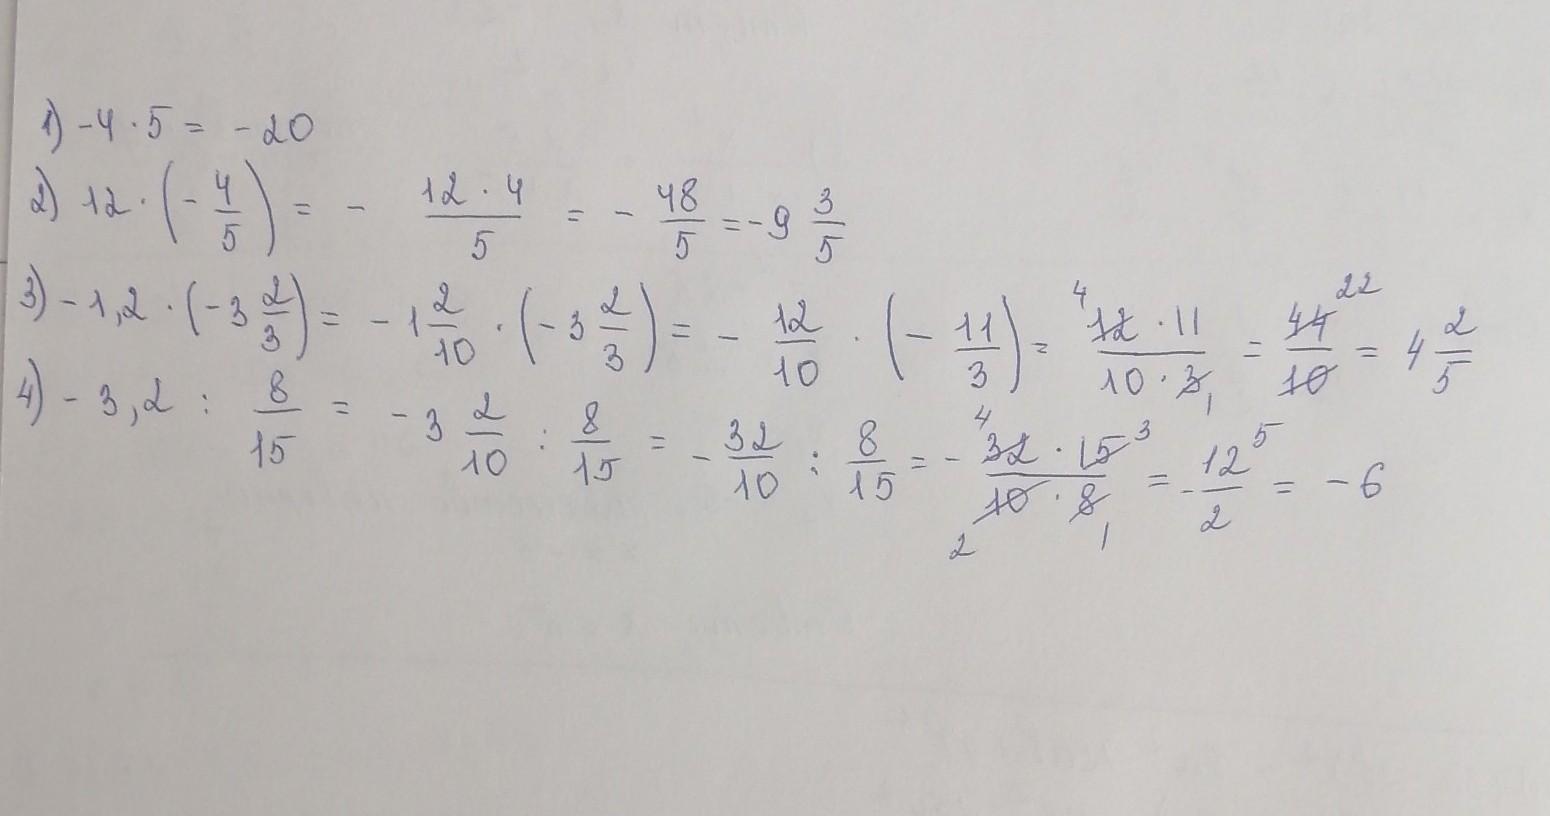 1) -4 · 5 = -20
2) 12 · (- 4/5) = - 12 · 4/5 = - 48/5 = -9 3/5
3) -1,2 · (-3 2/3) = -1 2/10 · (-3 2/3) = - 12/10 · (- 11/3) = 4 12 · 11/10 · 3 1 = 44 22/10 = 4 2/5
4) -3,2 : 8/15 = -3 2/10 : 8/15 = - 32/10 : 8/15 = - 4 32 · 15 3/2 10 · 8 1 = - 12 5/2 = -6